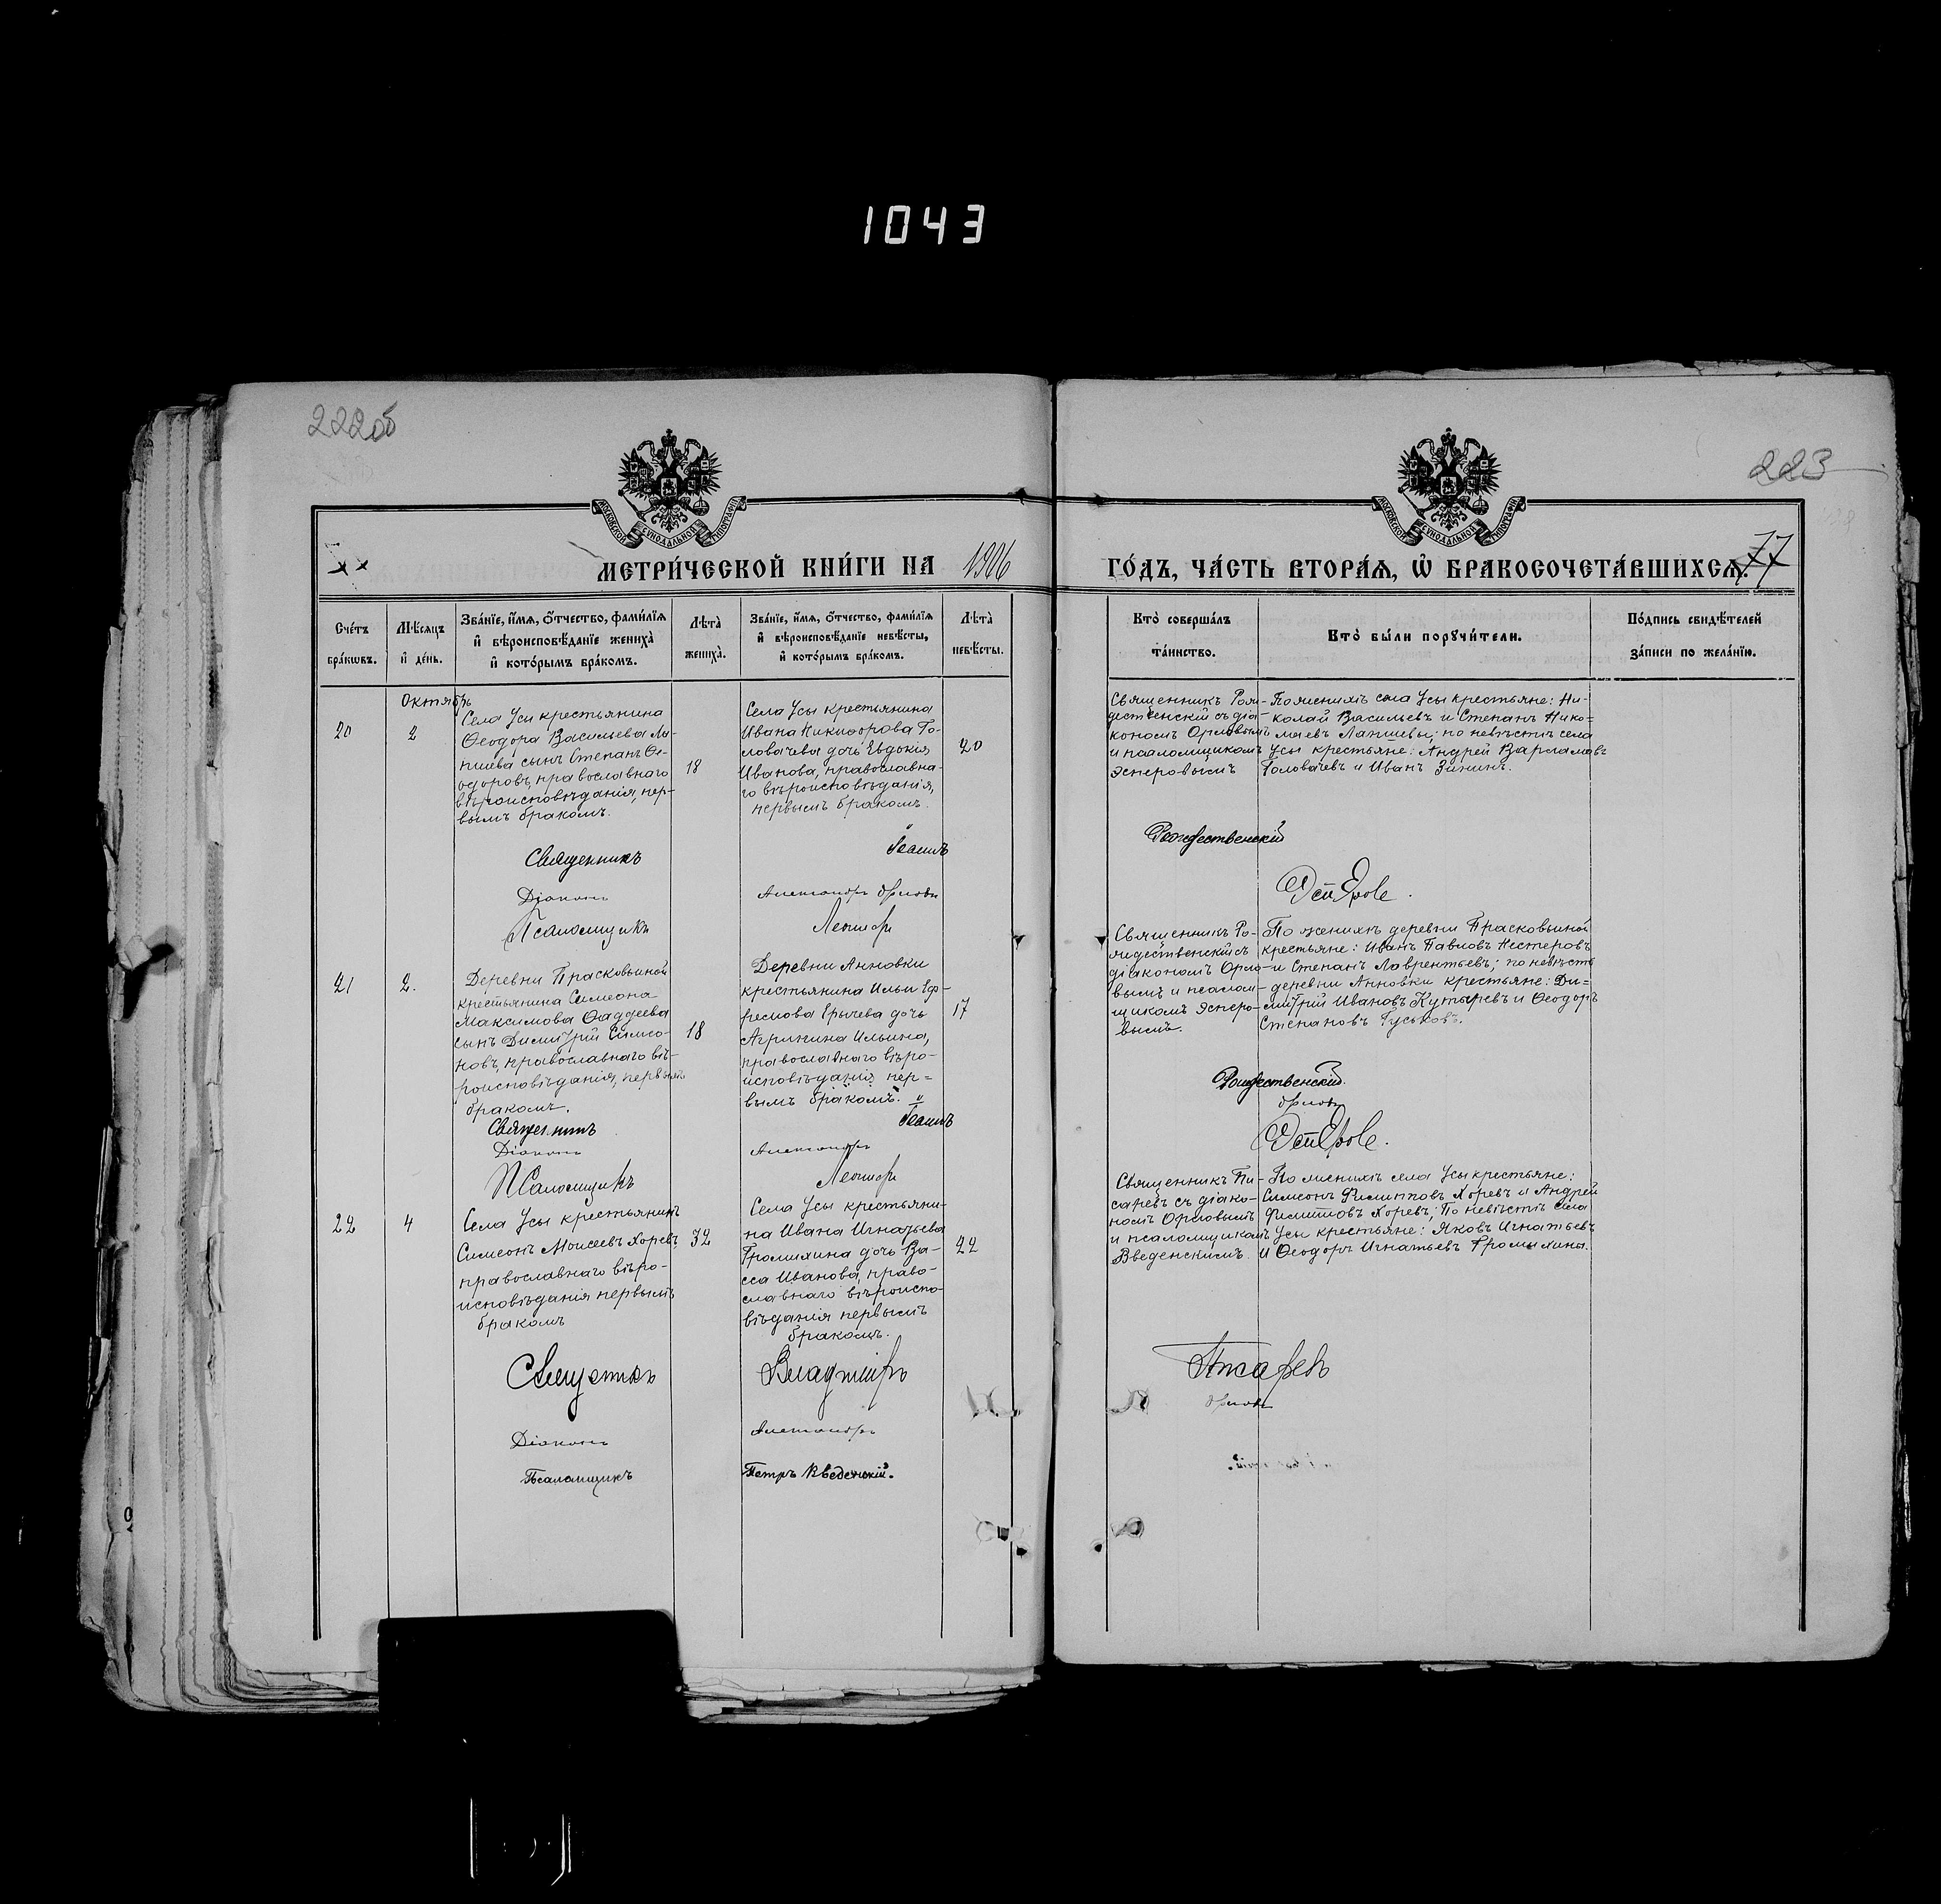 1043
222об
223
МОСКОВСКОЙ СѴНОДАЛЬНОЙ ТИПОГРАФІИ
МОСКОВСКОЙ СѴНОДАЛЬНОЙ ТИПОГРАФІИ
МЕТРИ́ЧЕСКОЙ КНИ́ГИ НА 1906
ГО́ДЪ, ЧА́СТЬ ВТОРА́Я, Ѽ БРАКОСОЧЕТА́ВШИХСЯ. 77
Сче́тъ
бра́кѡвъ.
Мѣ́сяцъ
и҆ де́нь.
Зва́нїе, и҆́мя, о҆́тчество, фами́лїя
и҆ вѣроисповѣ́данїе жениха̀
и҆ кото́рымъ бра́комъ.
Лѣ́та̀
жениха̀.
Зва́нїе, и҆́мя, о҆́тчество, фами́лїя
и҆ вѣроисповѣ́данїе невѣ́сты,
и҆ кото́рымъ бра́комъ.
Лѣ́та̀
невѣ́сты.
Кто̀ соверша́лъ
та́инство.
Кто̀ бы́ли порꙋчи́тели.
По́дпись свидѣ́телей
за́писи по жела́нїю.
Октябрь
20
2
Села Усы крестьянина
Ѳеодора Васильева Ла-
пшева сынъ Степанъ Ѳе-
одоровъ, православнаго
вѣроисповѣданія, пер-
вымъ бракомъ.
18
Села Усы крестьянина
Ивана Никифорова Го-
ловачева дочь Евдокія
Иванова, православна-
го вѣроисповѣданія,
первымъ бракомъ.
20
Священникъ Рож-
дественскій съ діа-
кономъ Орловымъ
и псаломщикомъ
Эсперовымъ
По женихѣ села Усы крестьяне: Ни-
колай Васильевъ и Степанъ Нико-
лаевъ Лапшевы; по невѣстѣ села
Усы крестьяне: Андрей Варламовъ
Головачевъ и Иванъ Зининъ.
Священникъ
Іоаннъ
Рождественскій
Діаконъ
Александръ Орловъ
Псаломщикъ
21
2.
Деревни Прасковьиной
крестьянина Симеона
Максимова Ѳаддеева
сынъ Димитрій Симео-
новъ, православнаго вѣ-
роисповѣданія, первымъ
бракомъ.
18
Деревни Анновки
крестьянина Ильи Еф-
ремова Ерычева дочь
Агрипина Ильина,
православнаго вѣро-
исповѣданія, пер-
вымъ бракомъ.
17
Священникъ Ро-
ждественскій съ
діакономъ Орло-
вымъ и псалом-
щикомъ Эсперо-
вымъ.
По женихѣ деревни Прасковьиной
крестьяне: Иванъ Павловъ Нестеровъ
и Степанъ Лаврентьевъ; по невѣстѣ
деревни Анновки крестьяне: Ди-
митрій Ивановъ Кутыревъ и Ѳеодоръ
Степановъ Гуськовъ.
Священникъ
Іоаннъ
Рождественскій.
Діаконъ
Александръ
Орловъ
Псаломщикъ
22
4
Села Усы крестьянинъ
Симеонъ Моисеевъ Хоревъ,
православнаго вѣро-
исповѣданія первымъ
бракомъ
32
Села Усы крестьяни-
на Ивана Игнатьева
Громихина дочь Ва-
сса Иванова, право-
славнаго вѣроиспо-
вѣданія первымъ
бракомъ.
22
Священникъ Пи-
саревъ съ діако-
номъ Орловымъ
и псаломщикомъ
Введенскимъ.
По женихѣ села Усы крестьяне:
Симеонъ Филипповъ Хоревъ и Андрей
Филипповъ Хоревъ. По невѣстѣ села
Усы крестьяне: Яковъ Игнатьевъ
и Ѳеодоръ Игнатьевъ Громыхины.
Священникъ
Владиміръ
Писаревъ
Діаконъ
Александръ
Орловъ
Псаломщикъ
Петръ Введенскій.